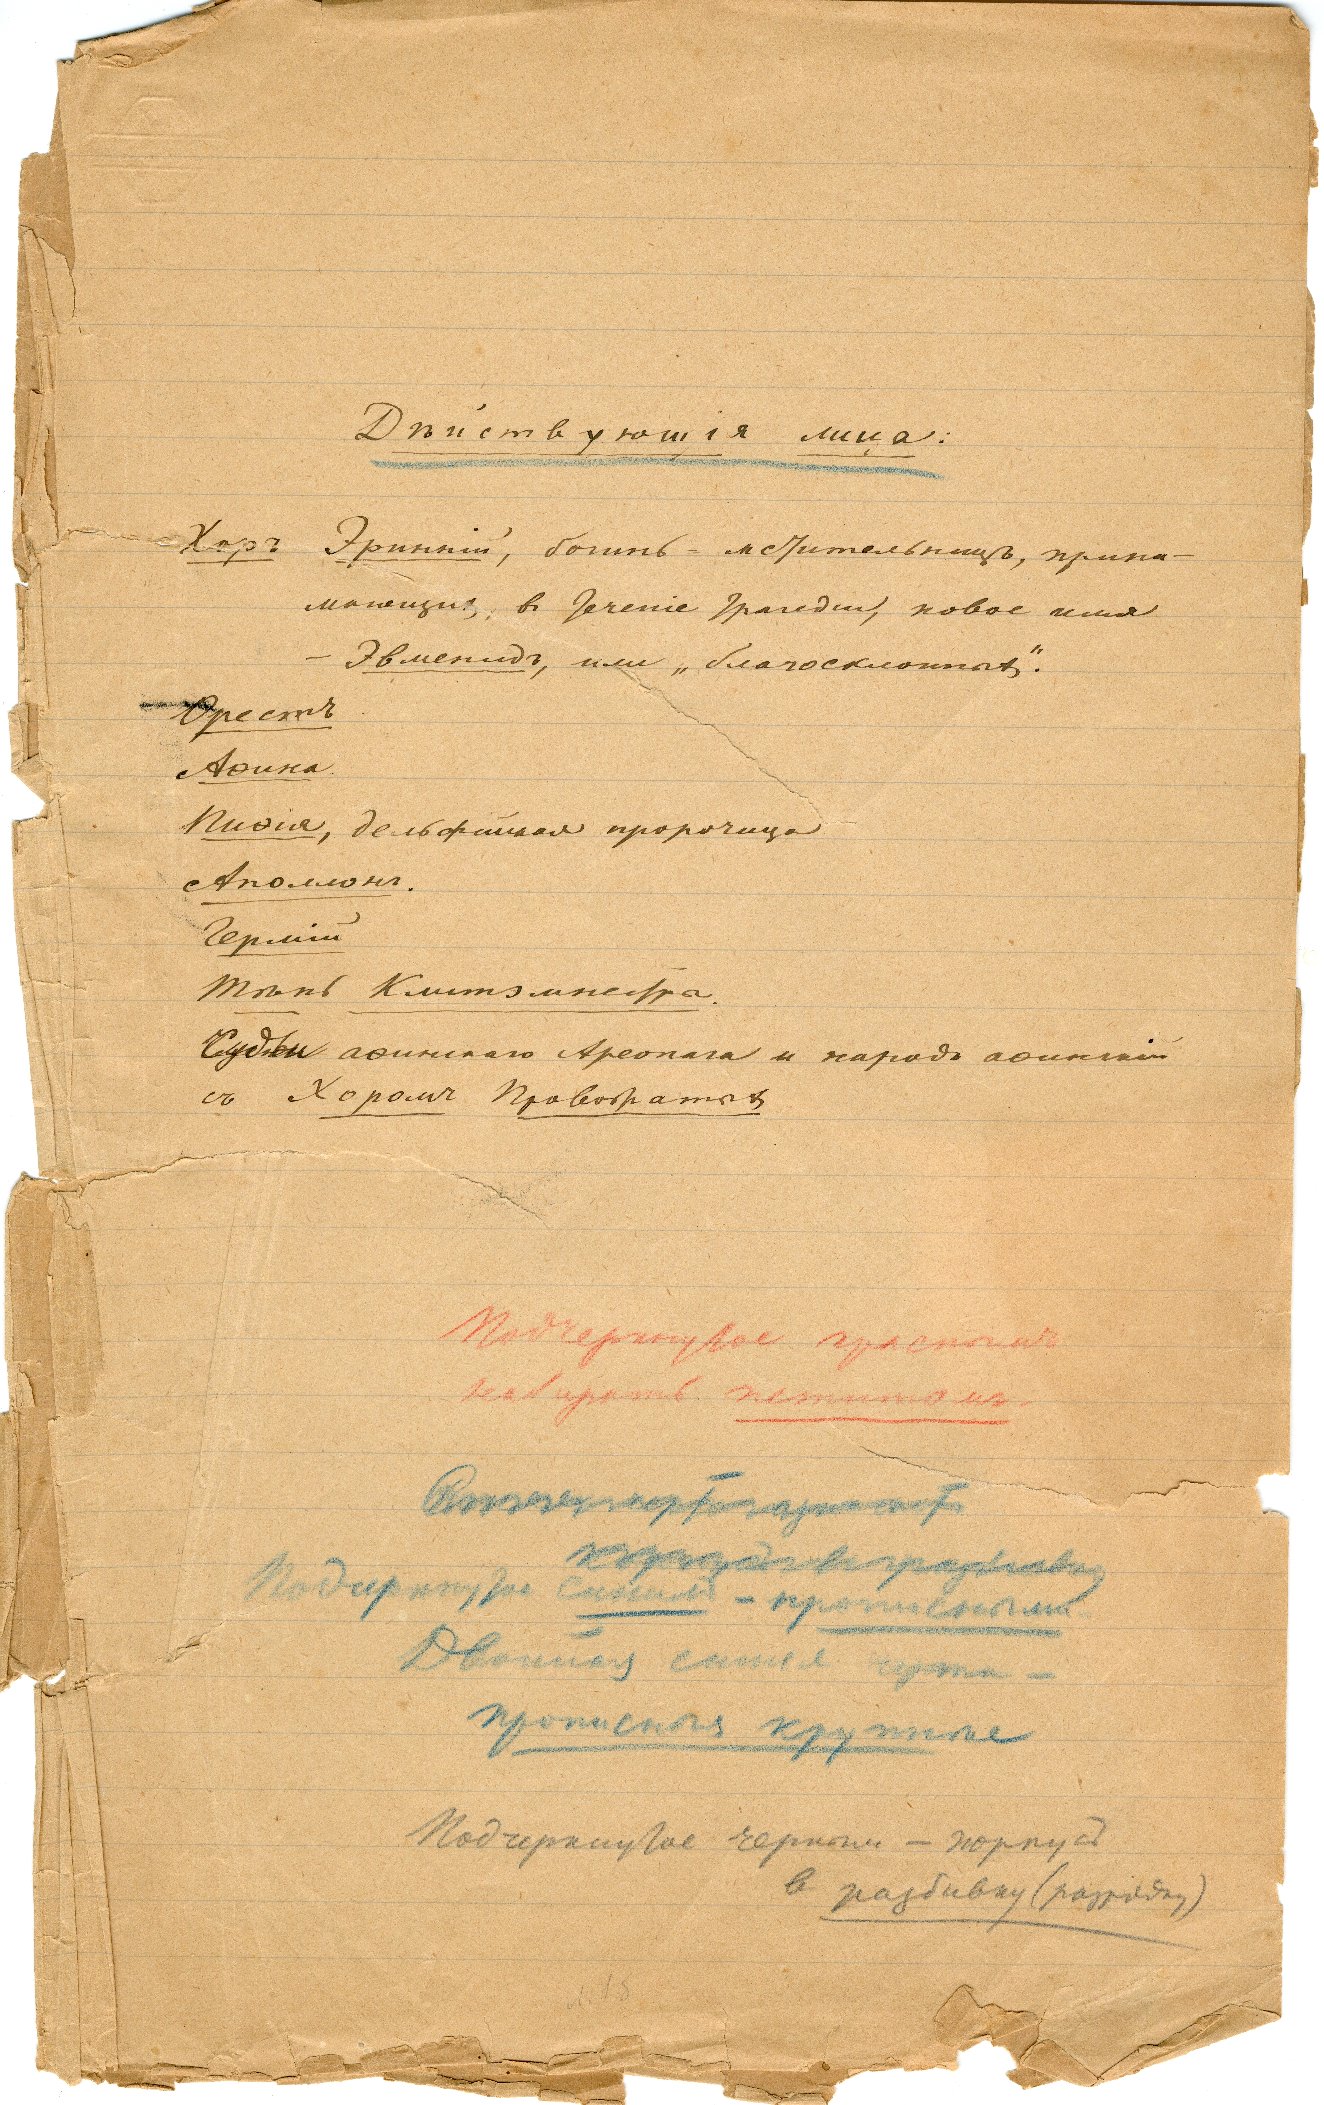 Дѣйствующія лица:
Хоръ Эринній, богинь-мстительницъ, прини-
мающихъ, въ теченіе трагедіи, новое имя
– Эвменидъ, или „благосклонныхъ“.
Орестъ
Аѳина
Пиѳія, дельфійская пророчица
Аполлонъ.
Гермій
Тѣнь Клитэмнестра.
Судьи аѳинскаго Ареопага и народъ аѳинскій
съ Хоромъ Провожатыхъ
Подчеркнутое краснымъ
набирать петитомъ.
Подчеркнутое синимъ – прописными
Двойная синяя черта –
прописныя крупные
Подчеркнутое черным – корпусъ
в разбивку (разрядку)